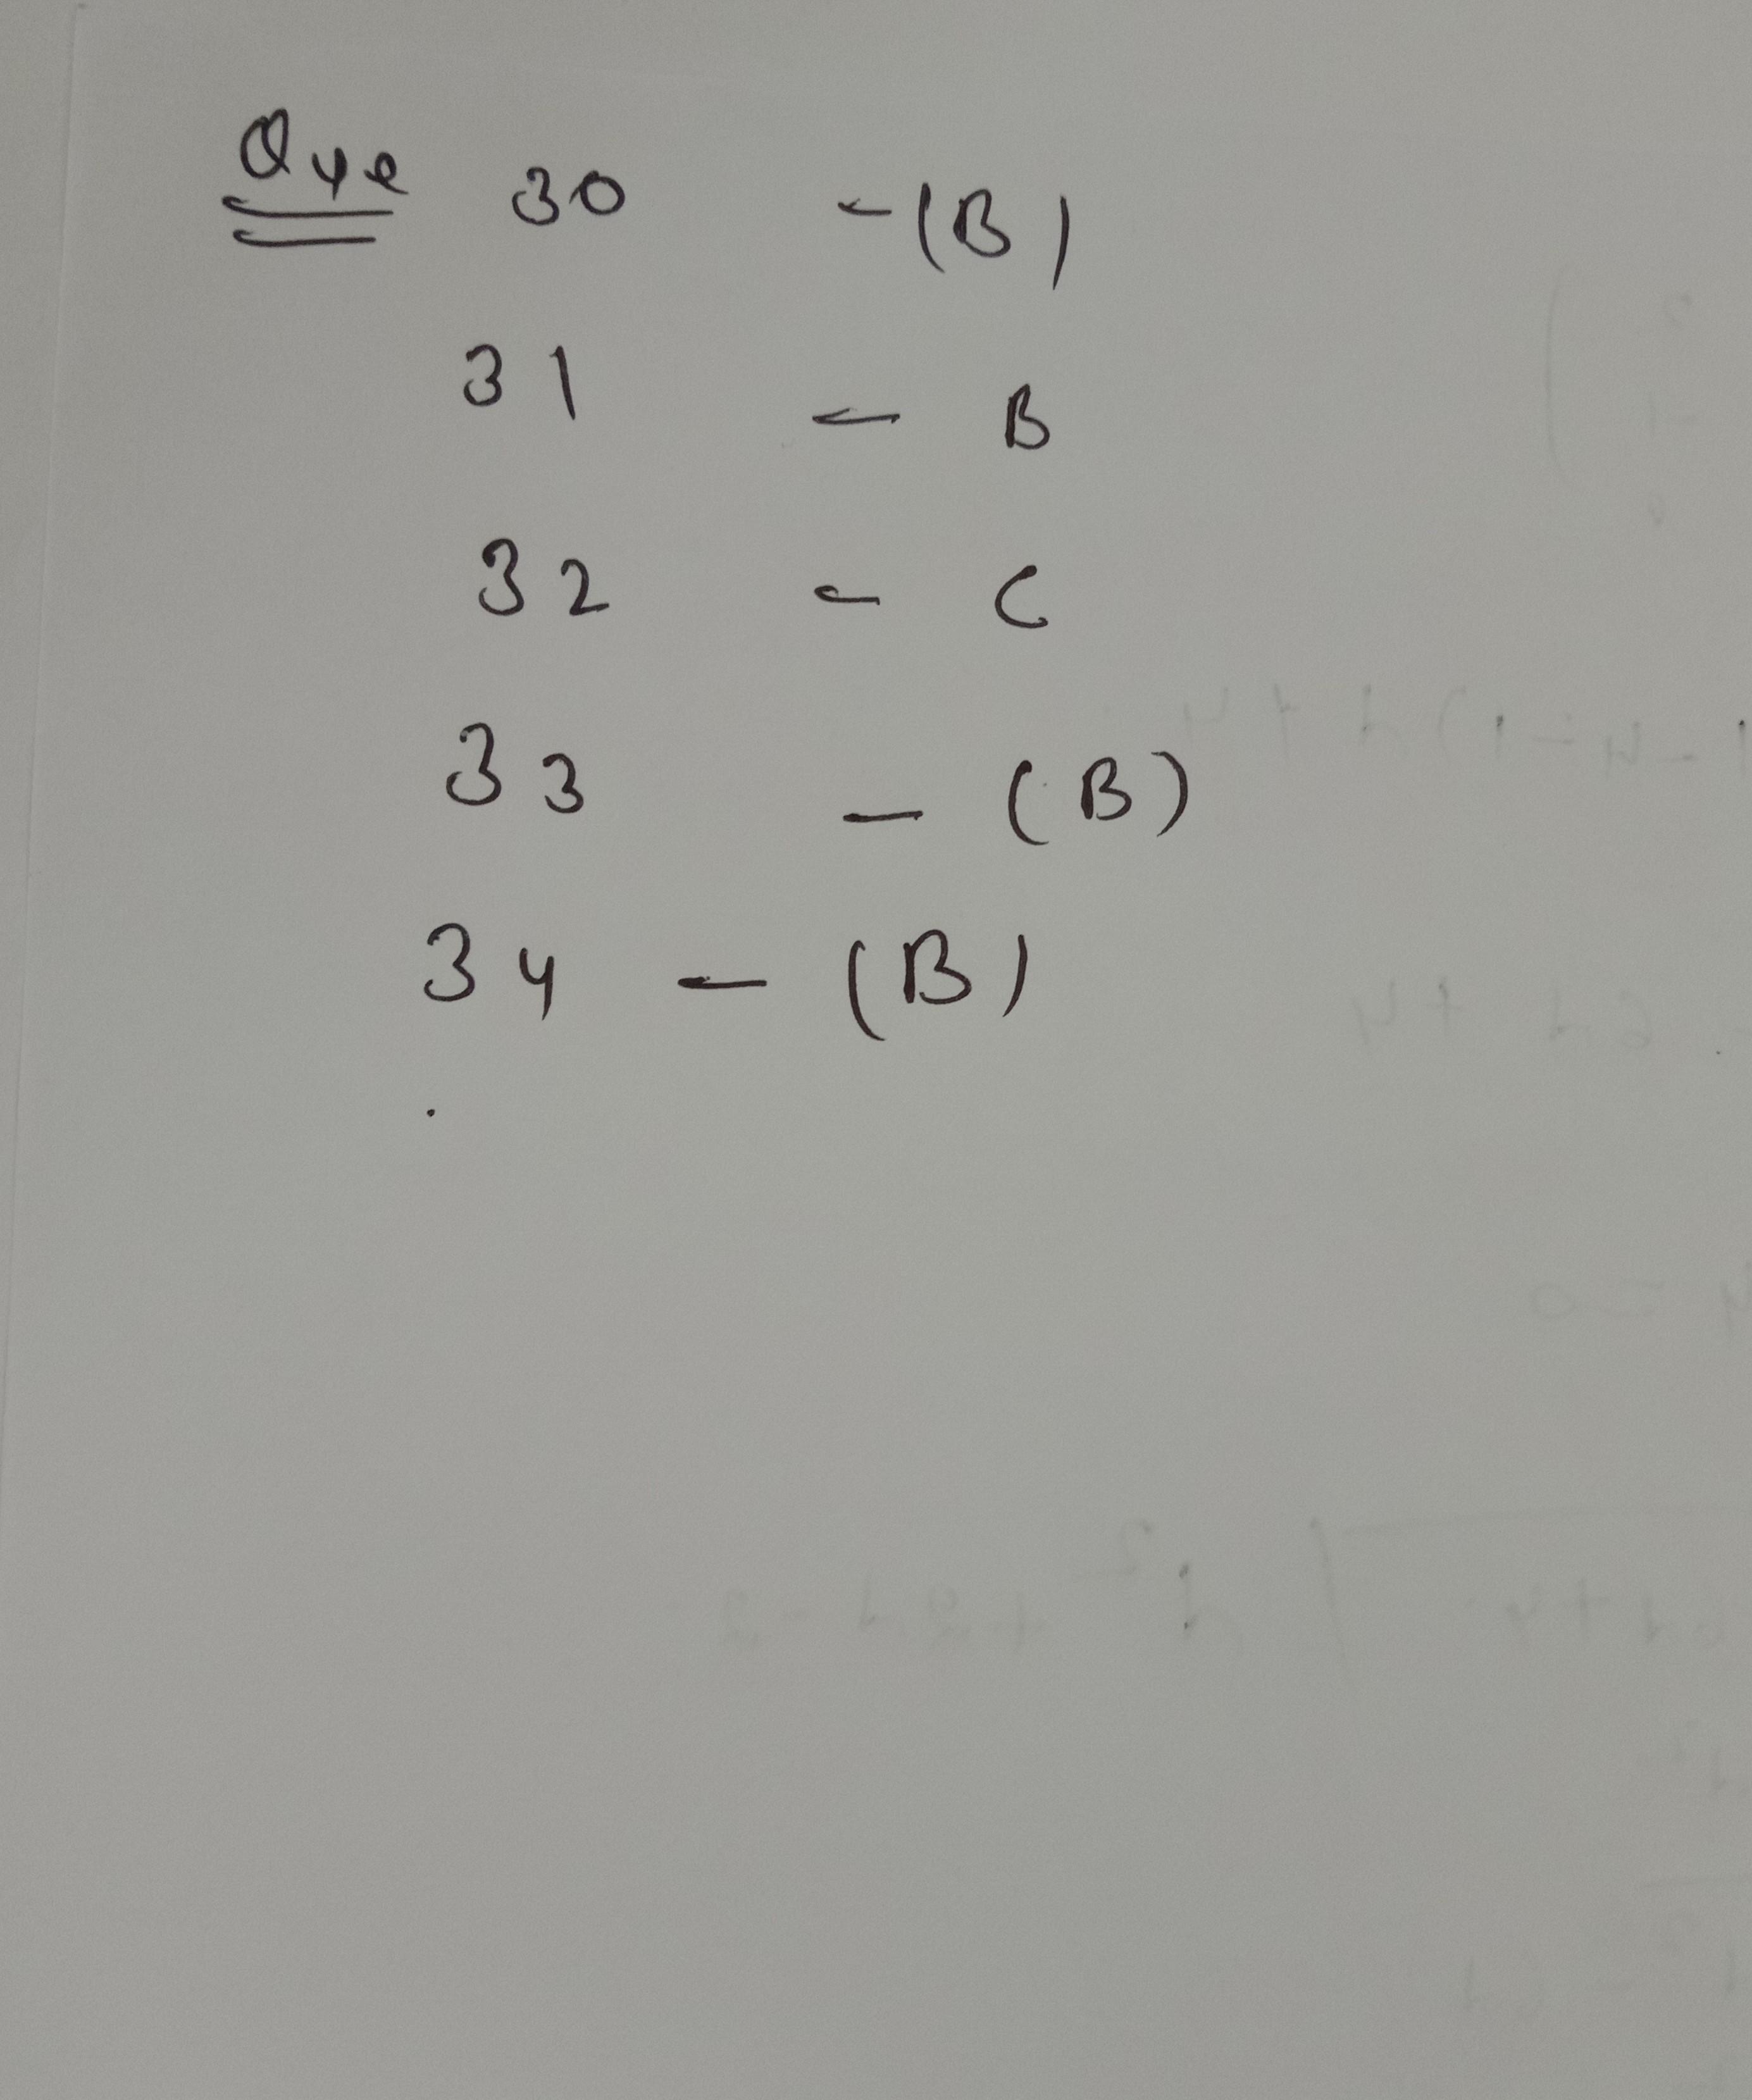 Que 30 - (B)
31 - B
32 - C
33 - (B)
34 - (B)